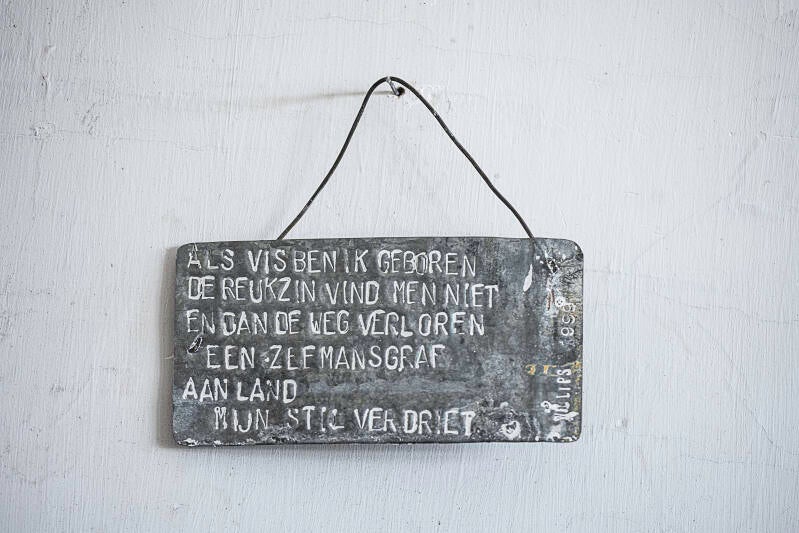 ALS VIS BEN IK GEBOREN
DE REUKZIN VIND MEN NIET
EN DAN DE WEG VERLOREN
EEN ZEEMANSGRAF
AAN LAND
MIJN STIL VERDRIET